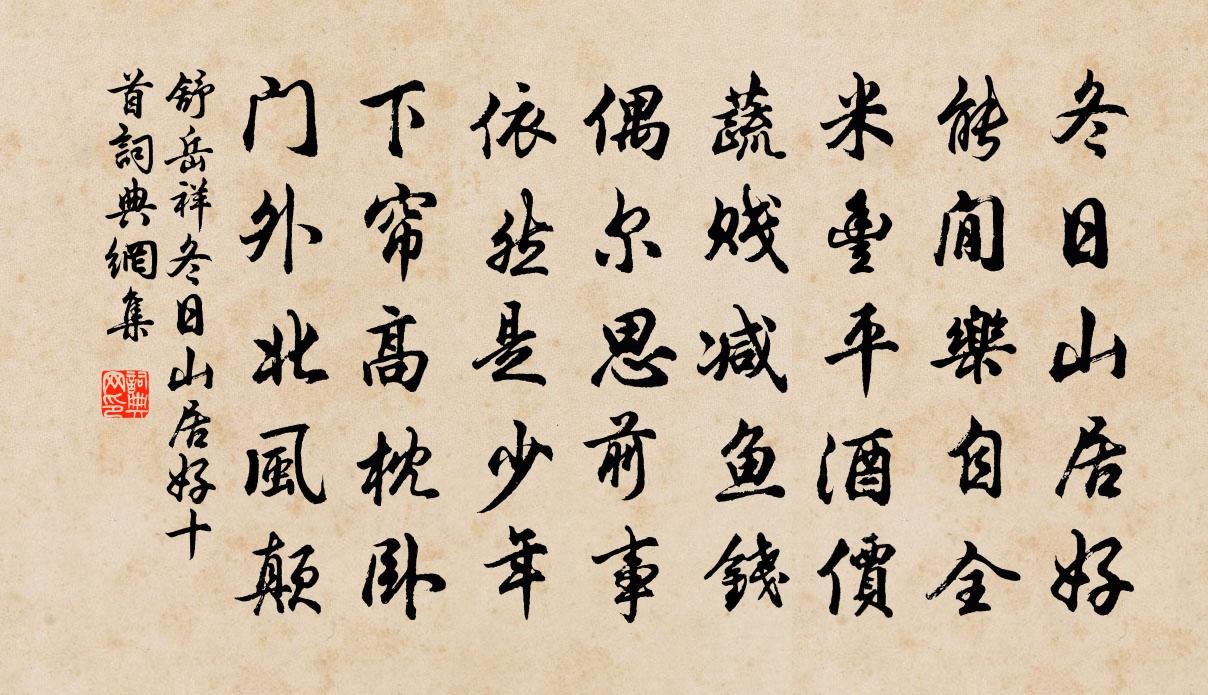 冬日山居好
能閒樂自全
米豐平酒價
蔬賤减鱼錢
偶尔思前事
依然是少年
下帘高枕卧
门外北風顛
舒岳祥冬日山居好十
首詞典網集
詞典
网印